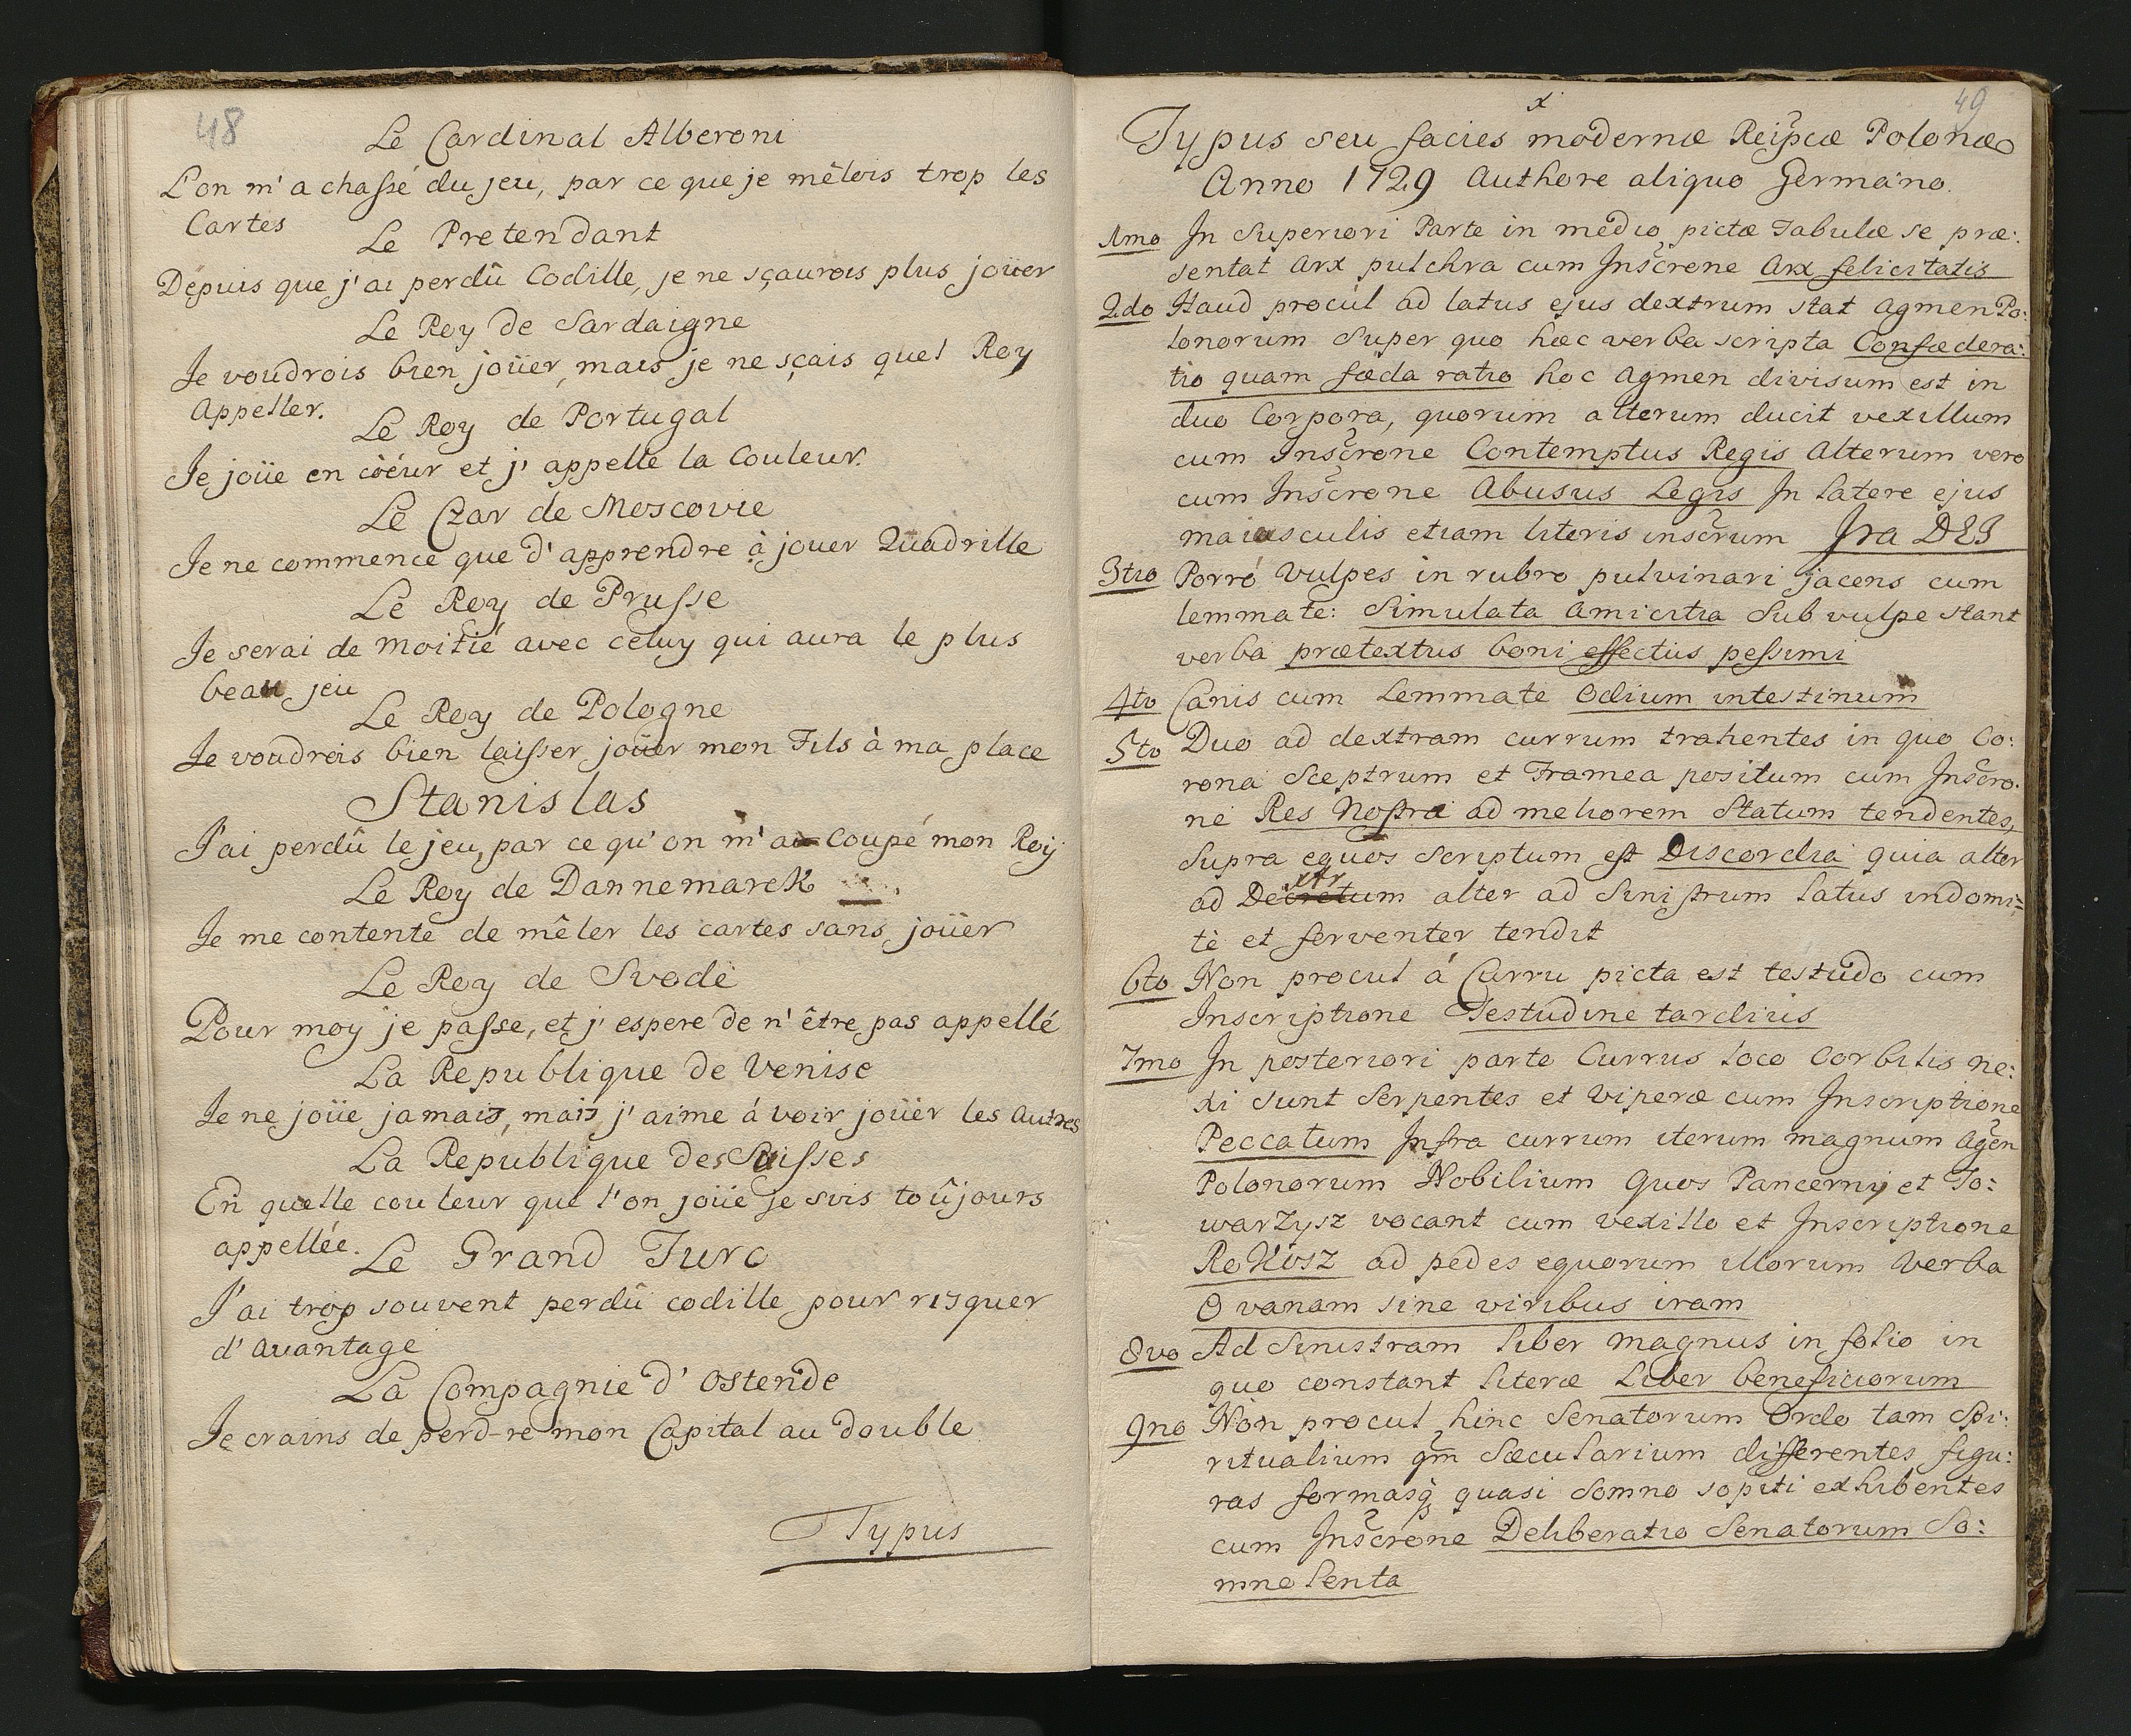 48
Le Cardinal Alberoni
L'on m'a chassé du jeu, par ce que je mêlois trop les
Cartes
Le Pretendant
Depuis que j'ai perdû Codille, je ne sçaurois plus joüer
Le Roy de Sardaigne
Je voudrois bien joüer, mais je ne sçais quel Roy
Appeller.
Le Roy de Portugal
Je joüe en cöéur et j'appelle la Couleur.
Le Czar de Moscovie
Je ne commence que d'apprendre à jouer Quadrille
Le Roy de Prusse
Je serai de moitié avec celuy qui aura le plus
beau jeu
Le Roy de Pologne
Je voudrois bien laisser joüer mon Fils à ma place
Stanislas
J'ai perdû le jeu, par ce qu'on m'a Coupé mon Roy
Le Roy de Dannemarck
Je me contente de mêler les cartes sans joüer
Le Roy de Svode
Pour moy je passe, et j'espere de n'être pas appellé
La Republique de Venise
Je ne joüe jamais, mais j'aime á voir joüer les Autres
La Republique des Suisses
En quelle couleur que l'on joüe je suis toûjours
appellée.
Le Grand Turc
J'ai trop souvent perdû codille pour risquer
d'avantage
La Compagnie d'Ostende
Je crains de perd-re mon Capital au double
Typus
49
x
Typus seu facies modernæ Reipcæ Polonæ
Anno 1729 Authore aliquo Germano.
1mo In Superiori Parte in medio pictæ Tabulæ se præ:
sentat Arx pulchra cum Inscrone Arx felicitatis
2do Haud procul ad latus ejus dextrum stat Agmen Po:
lonorum Super quo hæc verba scripta Confædera:
tio quam fæda ratio hoc Agmen divisum est in
duo Corpora, quorum alterum ducit vexillum
cum Inscrone Contemptus Regis Alterum vero
cum Inscrone Abusus Legis In latere ejus
maiusculis etiam literis inscrum Ira DEI
3tio Porró Vulpes in rubro pulvinari jacens cum
lemmate: Simulata Amicitia Sub vulpe stant
verba prætextus boni effectus pessimi
4to Canis cum Lemmate Odium intestinum
5to Duo ad dextram currum trahentes in quo Co:
rona Sceptrum et Framea positum cum Inscro:
ne Res Nostræ ad meliorem Statum tendentes,
Supra equos scriptum est Discordia quia alter
xtr
ad Decretum alter ad Sinistrum latus indomi:
tè et ferventer tendit
6to Non procul á Curru picta est testudo cum
Inscriptione Testudine tardius
7mo In posteriori parte Currus loco Corbitis ne:
xi sunt Serpentes et Viperæ cum Inscriptione
Peccatum Infra currum iterum magnum Agen
Polonorum Nobilium Quos Pancerny et To:
warzysz vocant cum vexillo et Inscriptione
Rokosz ad pedes equorum illorum Verba
O vanam sine viribus iram
8vo Ad Sinistram liber magnus in folio in
quo constant literæ Liber beneficiorum
9no Non procul hinc Senatorum Ordo tam Spi:
ritualium qm Sæcularium differentes figu:
ras formasq quasi Somno sopiti exhibentes
cum Inscrone Deliberatio Senatorum So:
mnolenta